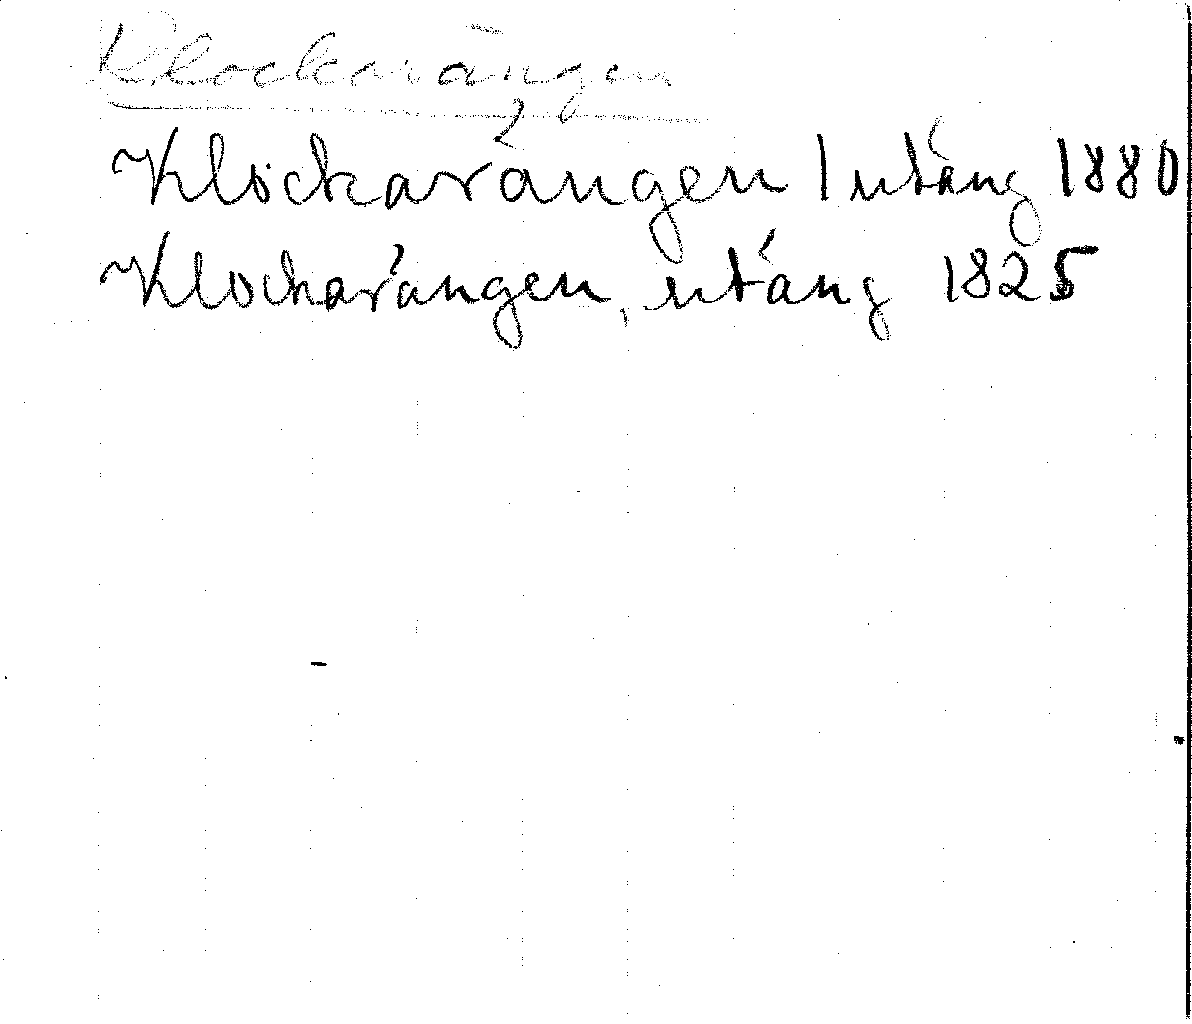 Klockarängen
Klockarängen 1 utäng 1880
Klockarängen, utäng 1825